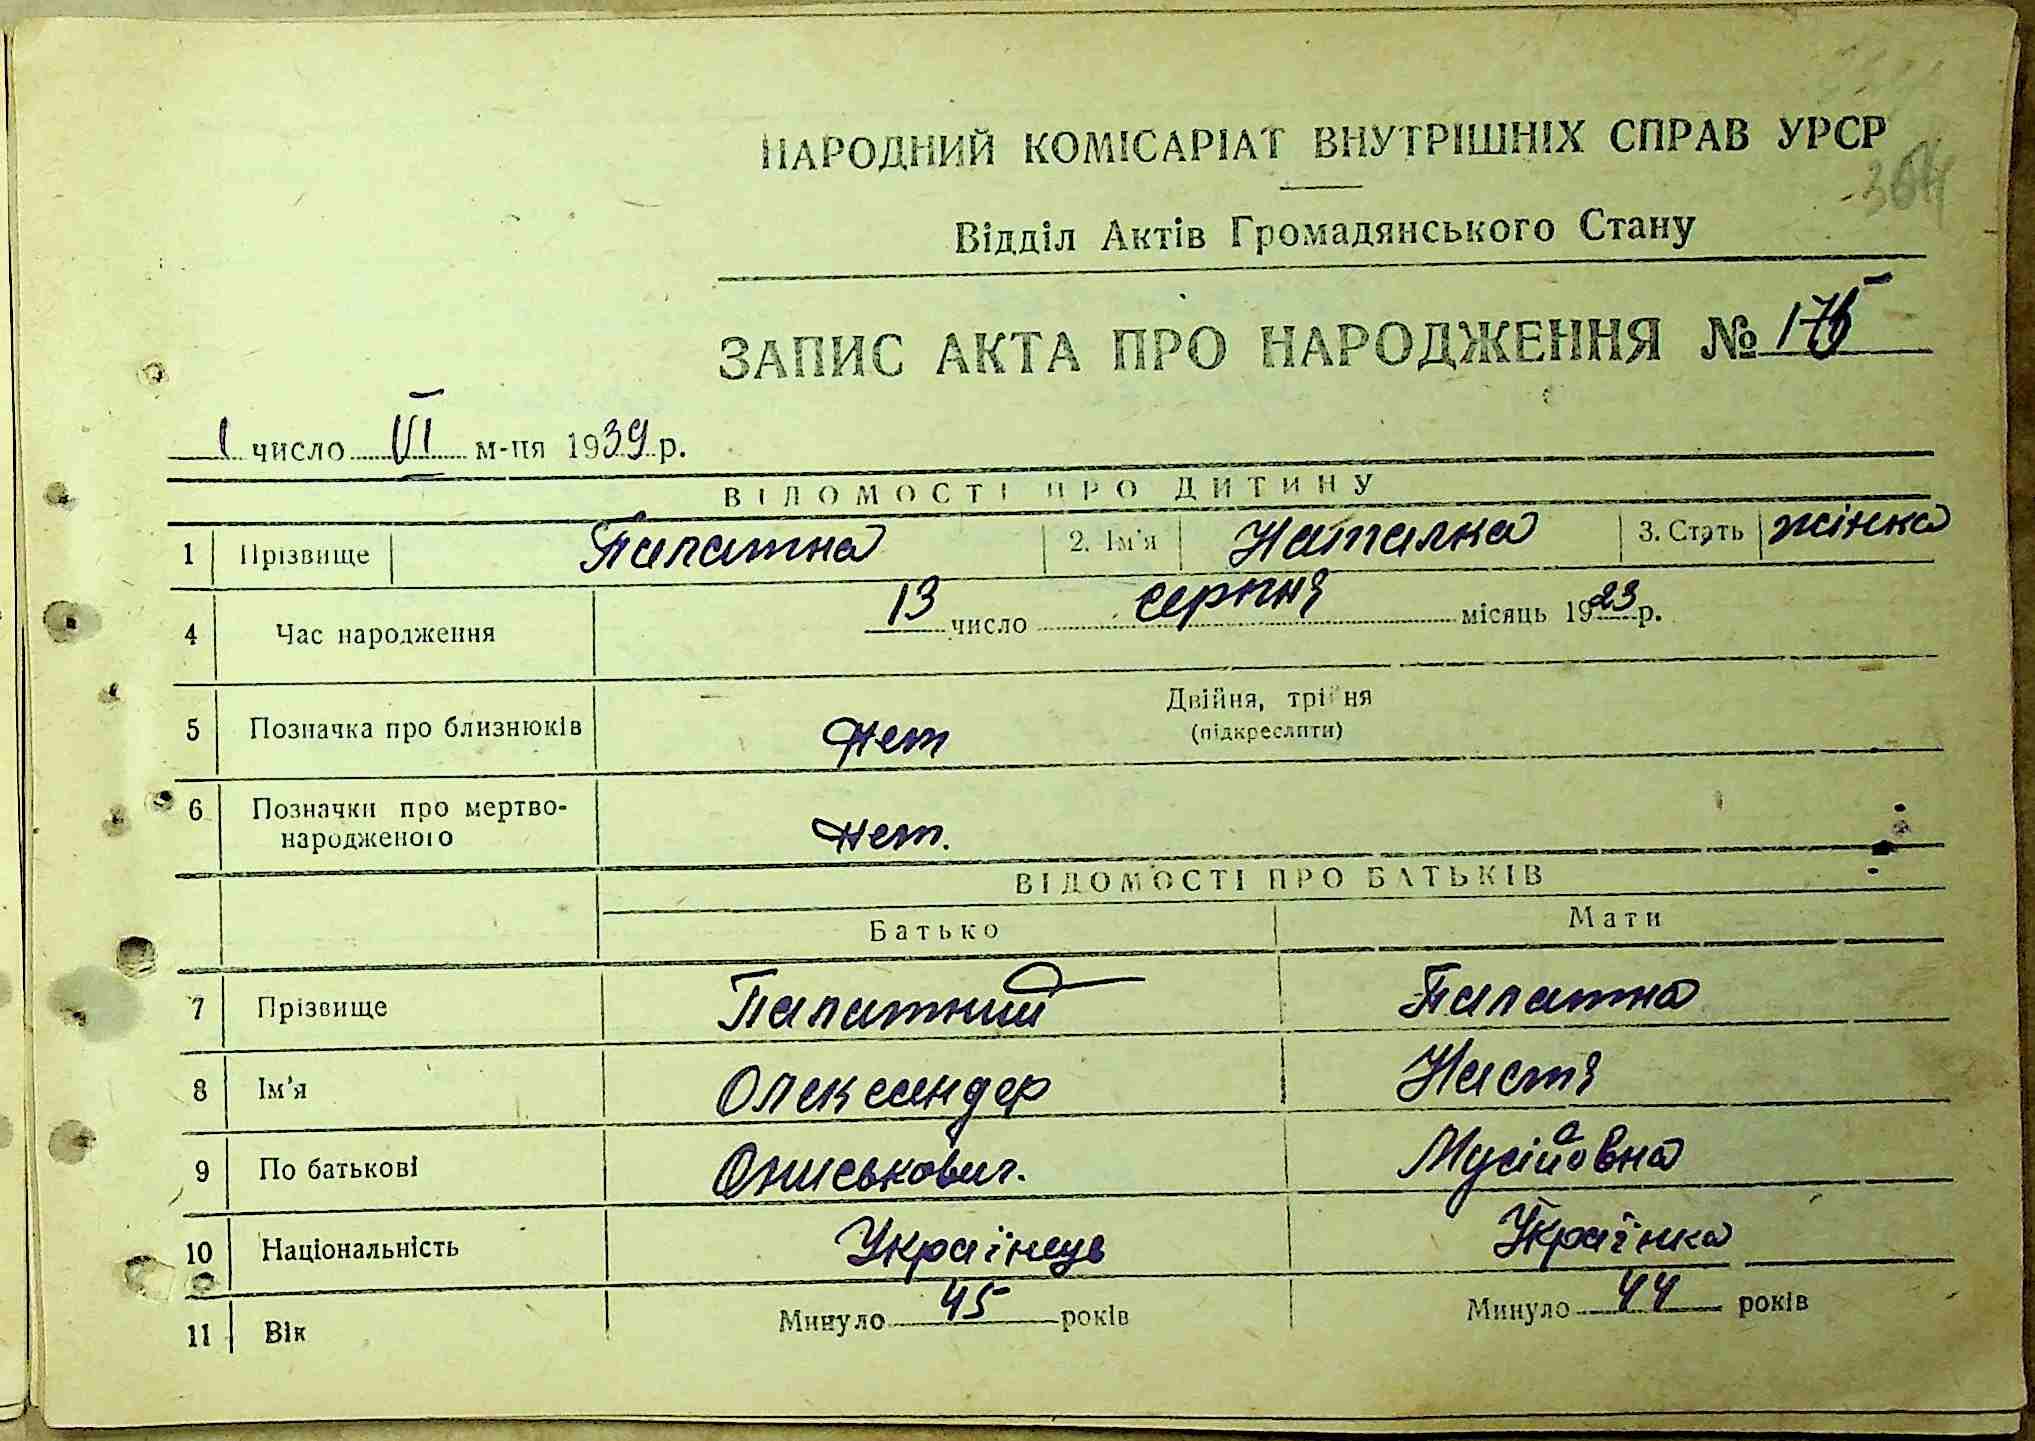 364
НАРОДНИЙ КОМІСАРІАТ ВНУТРІШНІХ СПРАВ УРСР
Відділ Актів Громадянського Стану
ЗАПИС АКТА ПРО НАРОДЖЕННЯ № 175
1 число VI м-ця 1939 р.
ВІДОМОСТІ ПРО ДИТИНУ
1 Прізвище Палатна 2. Ім'я Наталка 3. Стать жінка
4 Час народження 13 число серпня місяць 1923 р.
5 Позначка про близнюків Нет Двійня, трійня
(підкреслити)
6 Позначки про мертво-
народженого Нет.
ВІДОМОСТІ ПРО БАТЬКІВ
Батько Мати
7 Прізвище Палатний Палатна
8 Ім'я Олександер Настя
9 По батькові Ониськович. Мусійовна
10 Національність Українець Українка
11 Вік Минуло 45 років Минуло 44 років